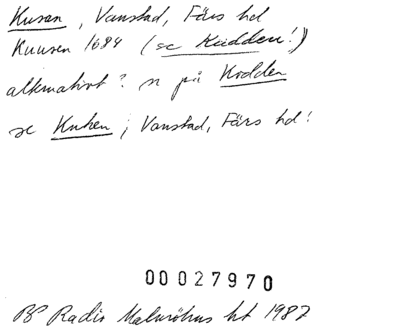 Kusen, Vanstad, Färs hd
Kuusen 1684 (se Kudden!)
alternativt? n på Kodden
se Kuken; Vanstad, Färs hd!
00027970
BP Radio Malmöhus ht 1987